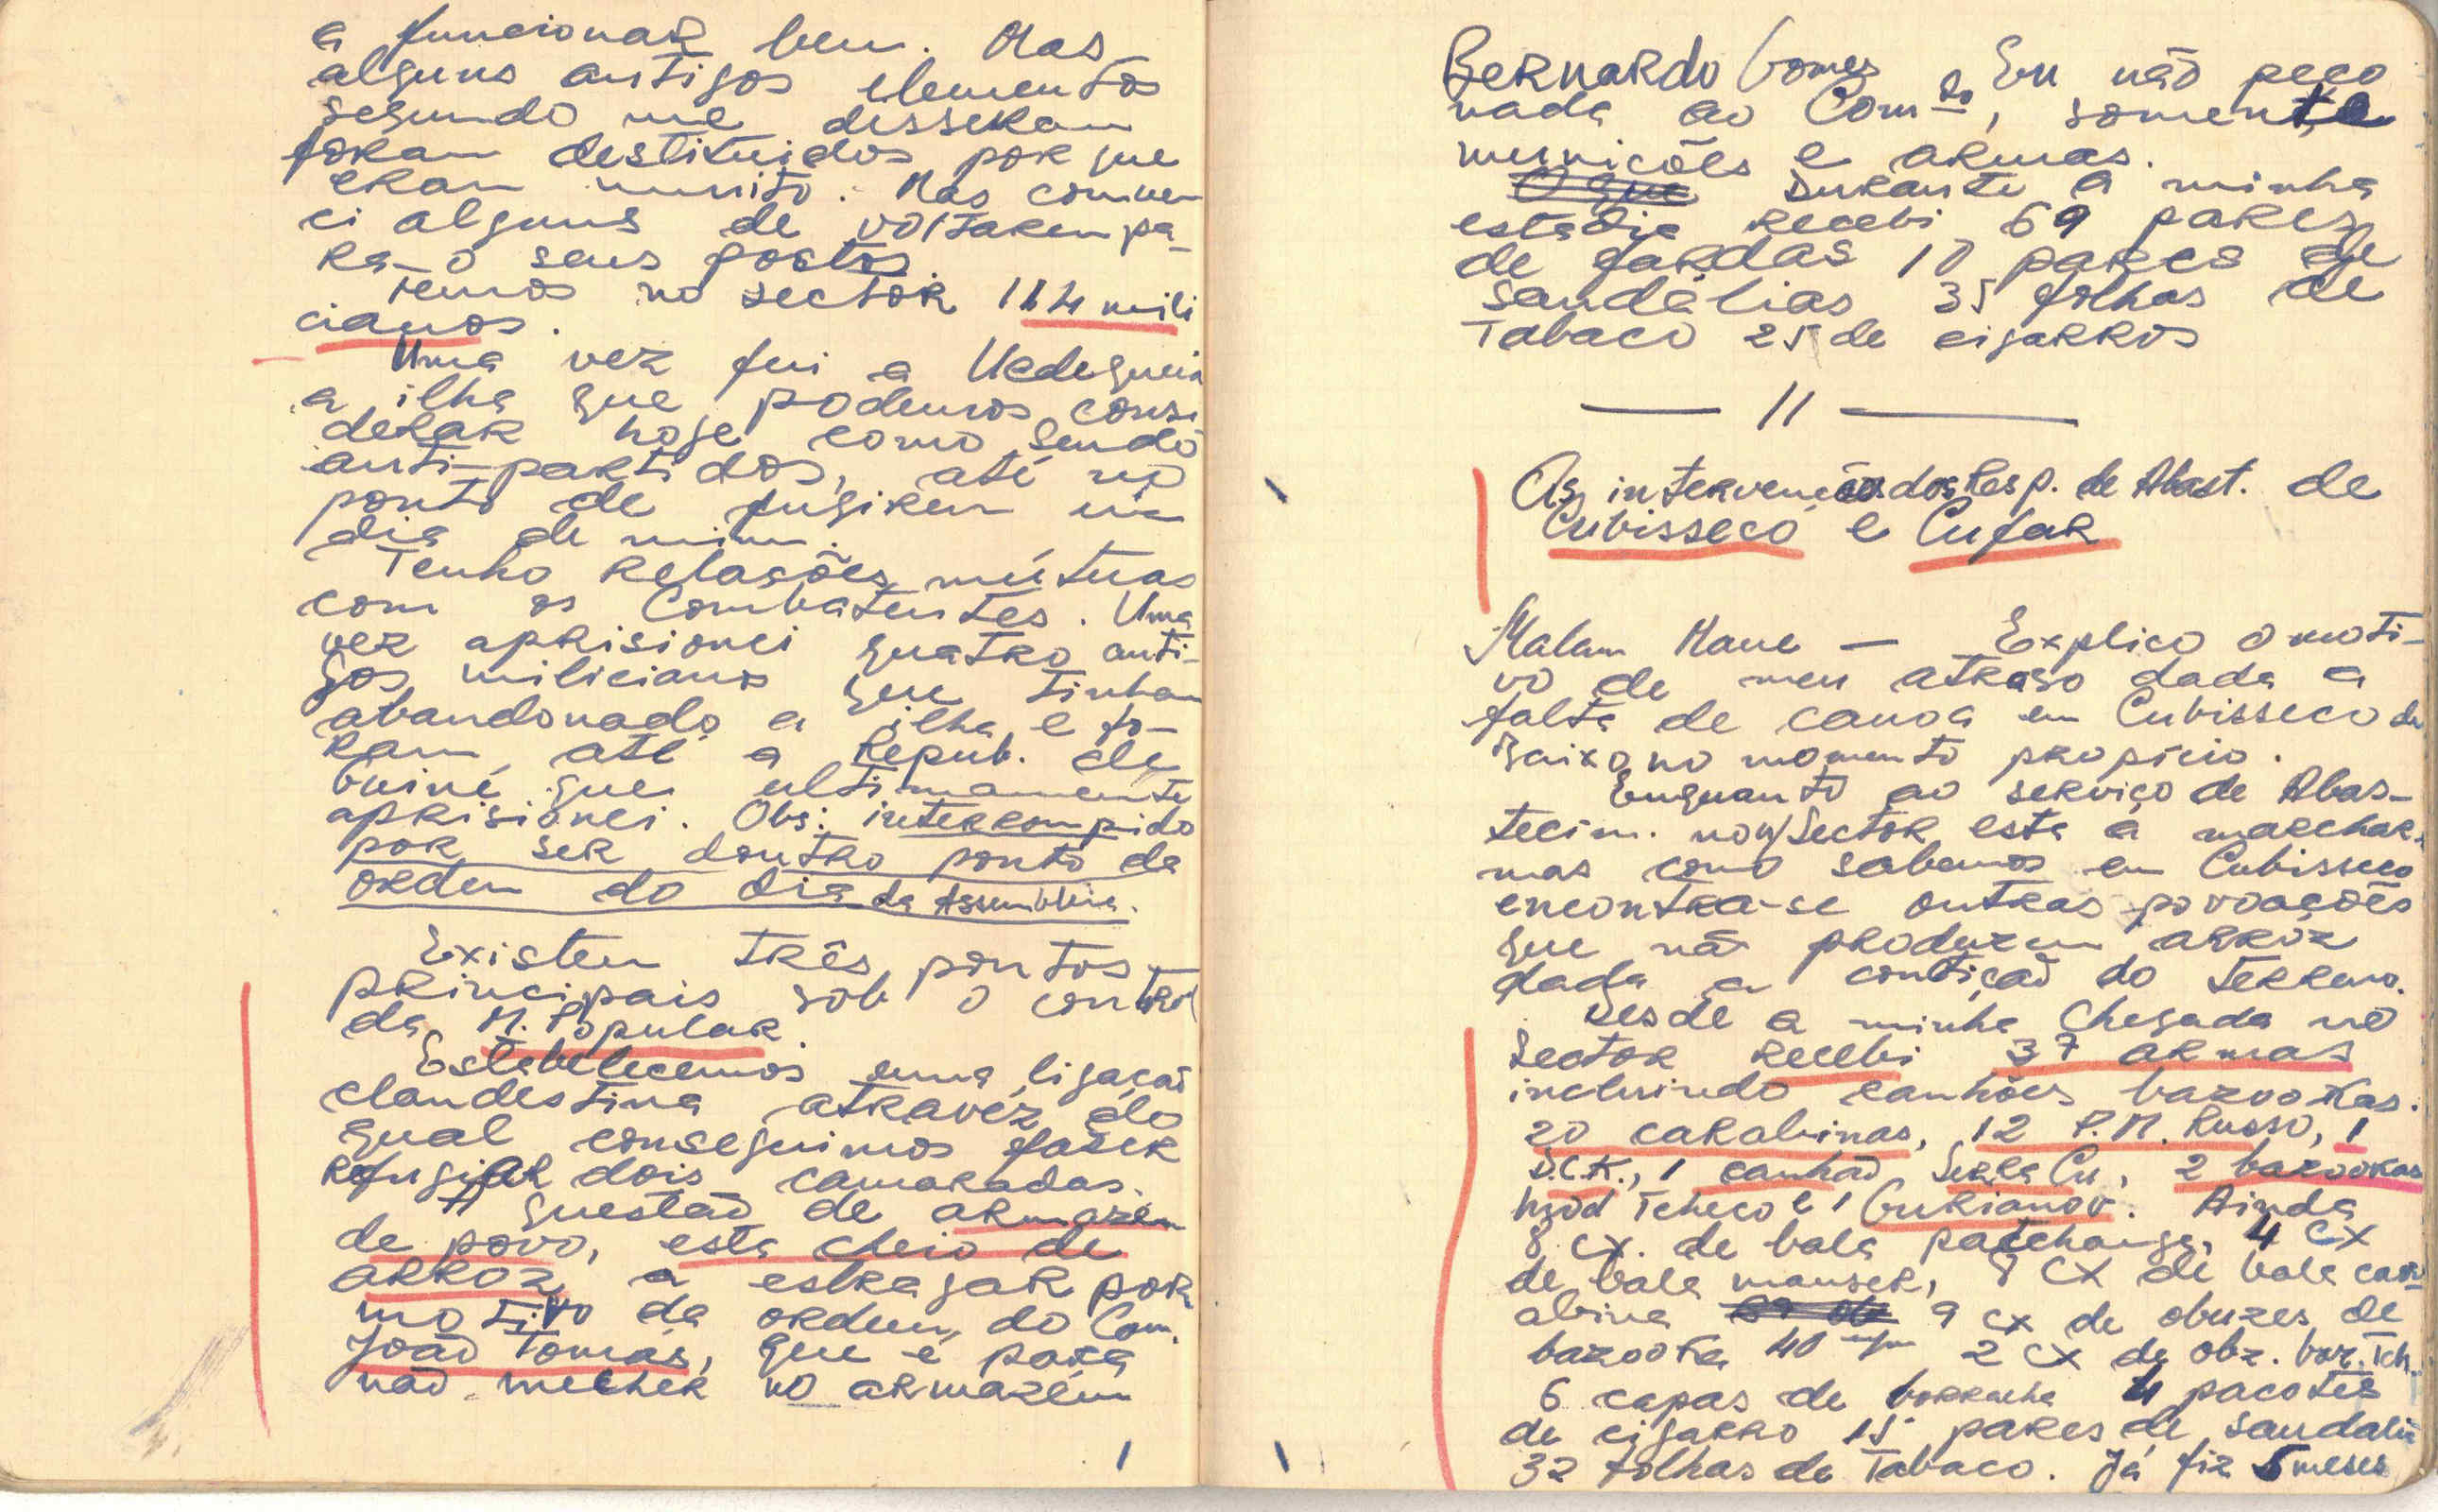 a funcionar bem. Mas
alguns antigos elementos
segundo me disseram
foram destituidos por que
eram muito. Mas conven
ci alguns de voltarem pa-
ra o seus postos.
Temos no sector 114 mili
cianos.
Uma vez fui a Uedequeia
a ilha que podemos consi
derar hoje como sendo
anti-partidos, até no
ponto de fugirem um
dia de mim.
Tenho relasões mútuas
com os Combatentes. Uma
vez aprisionei quatro anti-
gos milicianos que tinham
abandonado a ilha e fo-
ram até a Repub. de
Guiné que ultimamente
aprisionei. Obs: interrompido
por ser doutro ponto da
ordem do dia da Assembleia.
Existem três pontos
principais sob o control
da M. Popular
Estabelecemos uma ligação
clandestina atravéz do
qual conseguimos faser
refugiar dois camaradas.
A questão de armazém
de povo, esta cheio de
arroz a estragar por
motivo da ordem do Com.
João Tomás, que é para
não mecher no armazém
Bernardo Gomes Eu não peço
nada ao Com.to, somente
munições e armas.
O que Durante a minha
estadia recebi 69 pares
de fardas 10 pares de
sandálias 35 folhas de
Tabaco 25 de cigarros
— 11 —
As intervenções dos Resp. de Abast. de
Cubisseco e Cufar
Malam Mane — Explico o moti-
vo de meu atraso dada a
falta de canoa em Cubisseco de
Baixo no momento propício.
Enquanto ao serviço de Abas-
tecim. no n/Sector esta a marchar.
mas como sabemos em Cubisseco
encontra-se outras povoações
que não produzem arroz
dada a contição do Terreno.
Desde a minha Chegada no
Sector recebi 37 armas
incluindo canhões bazookas.
20 carabinas, 12 P.M. Russo, 1
D.C.K., 1 canhão Serra Cu, 2 bazookas
mod Tcheco e 1 Gurianov. Ainda
8 cx. de bala patchanga, 4 cx
de bala mauser, 8 cx de bala car
abina 9 cx de obuzes de
bazooka 40 2 cx de obz. baz. Tch.
6 capas de borracha 4 pacotes
de cigarro 15 pares de sandália
32 folhas de Tabaco. Já fiz 5 meses